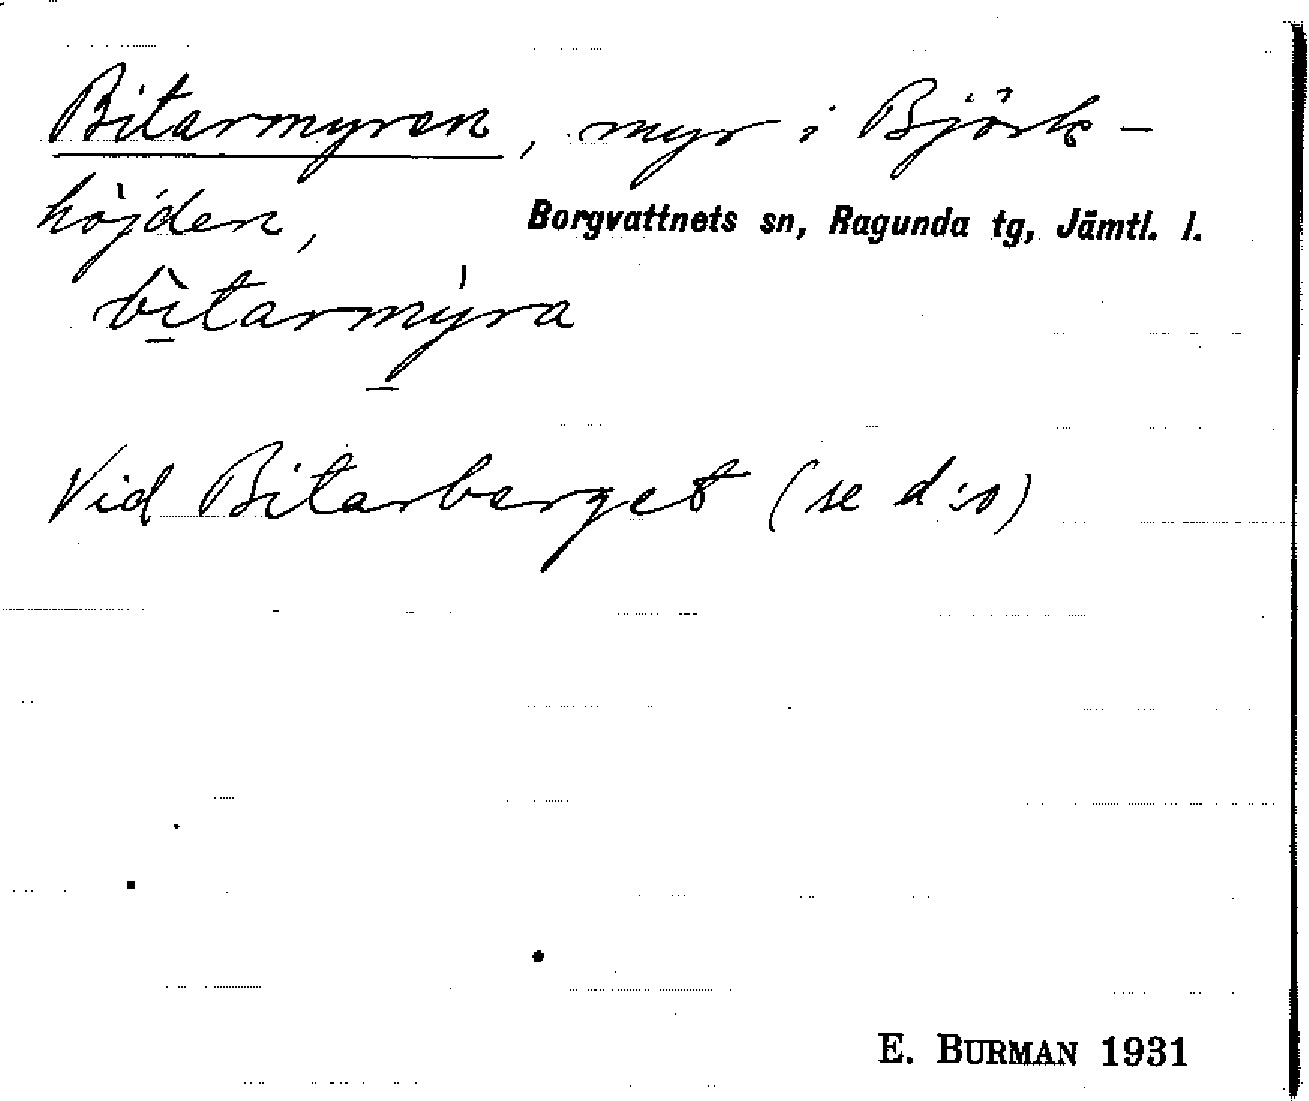 Bitarmyren, myr i Björk-
höjden, Borgvattnets sn, Ragunda tg, Jämtl. l.
bìtarmýra
Vid Bitarberget (se d:o)
E. BURMAN 1931